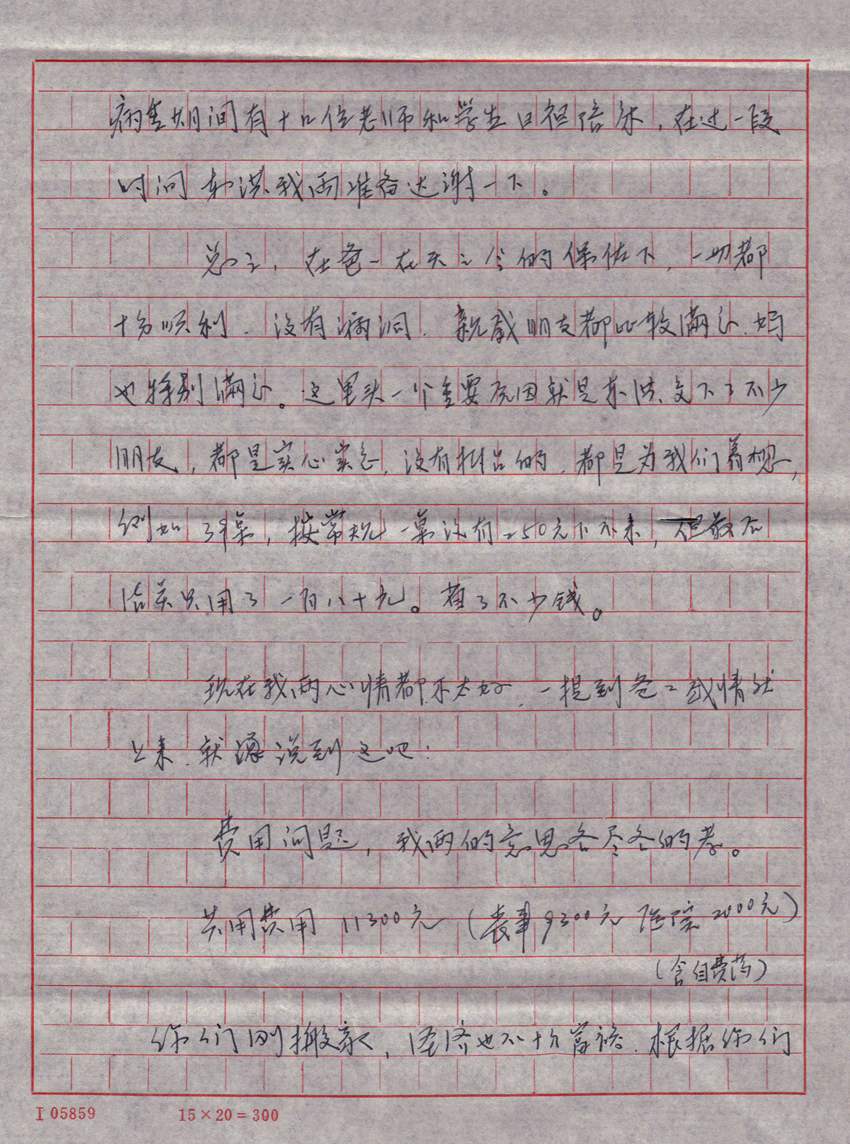 病重期间有十几位老师和学生日夜陪床，在过一段
时间 东洪我两准备达谢一下。
总之，在爸一在天之灵的保佑下，一切都
十分顺利．没有漏洞．亲戚朋友都比较满意．妈
也特别满意。这里头一个主要原因就是东洪交下了不少
朋友，都是实心实意，没有外心的．都是为我们着想，
例如 39桌，按常规一桌没有250元下不来，但最后
结关只用了一百八十元。省了不少钱。
现在我两心情都不太好．一提到爸二感情就
上来．就漫说到这吧．
费用问题，我两的意思各尽各的孝。
共用费用 11300元（丧事9300元 医院2000元）
（含自费药）
你们刚搬家，经济也不十分富裕．根据你们
I 05859
15×20＝300